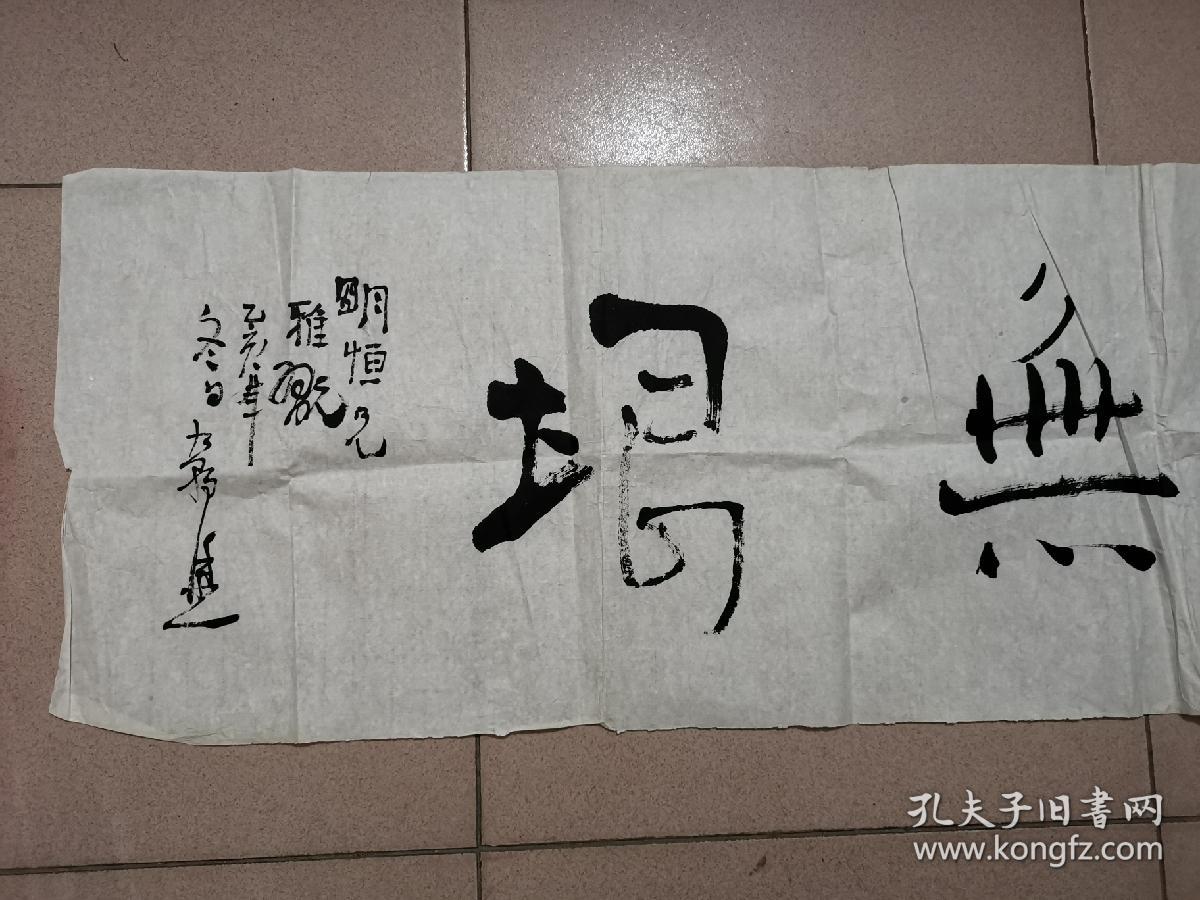 無
明恒兄
雅翫
乙亥年
冬日
孔夫子旧書网
www.kongfz.com